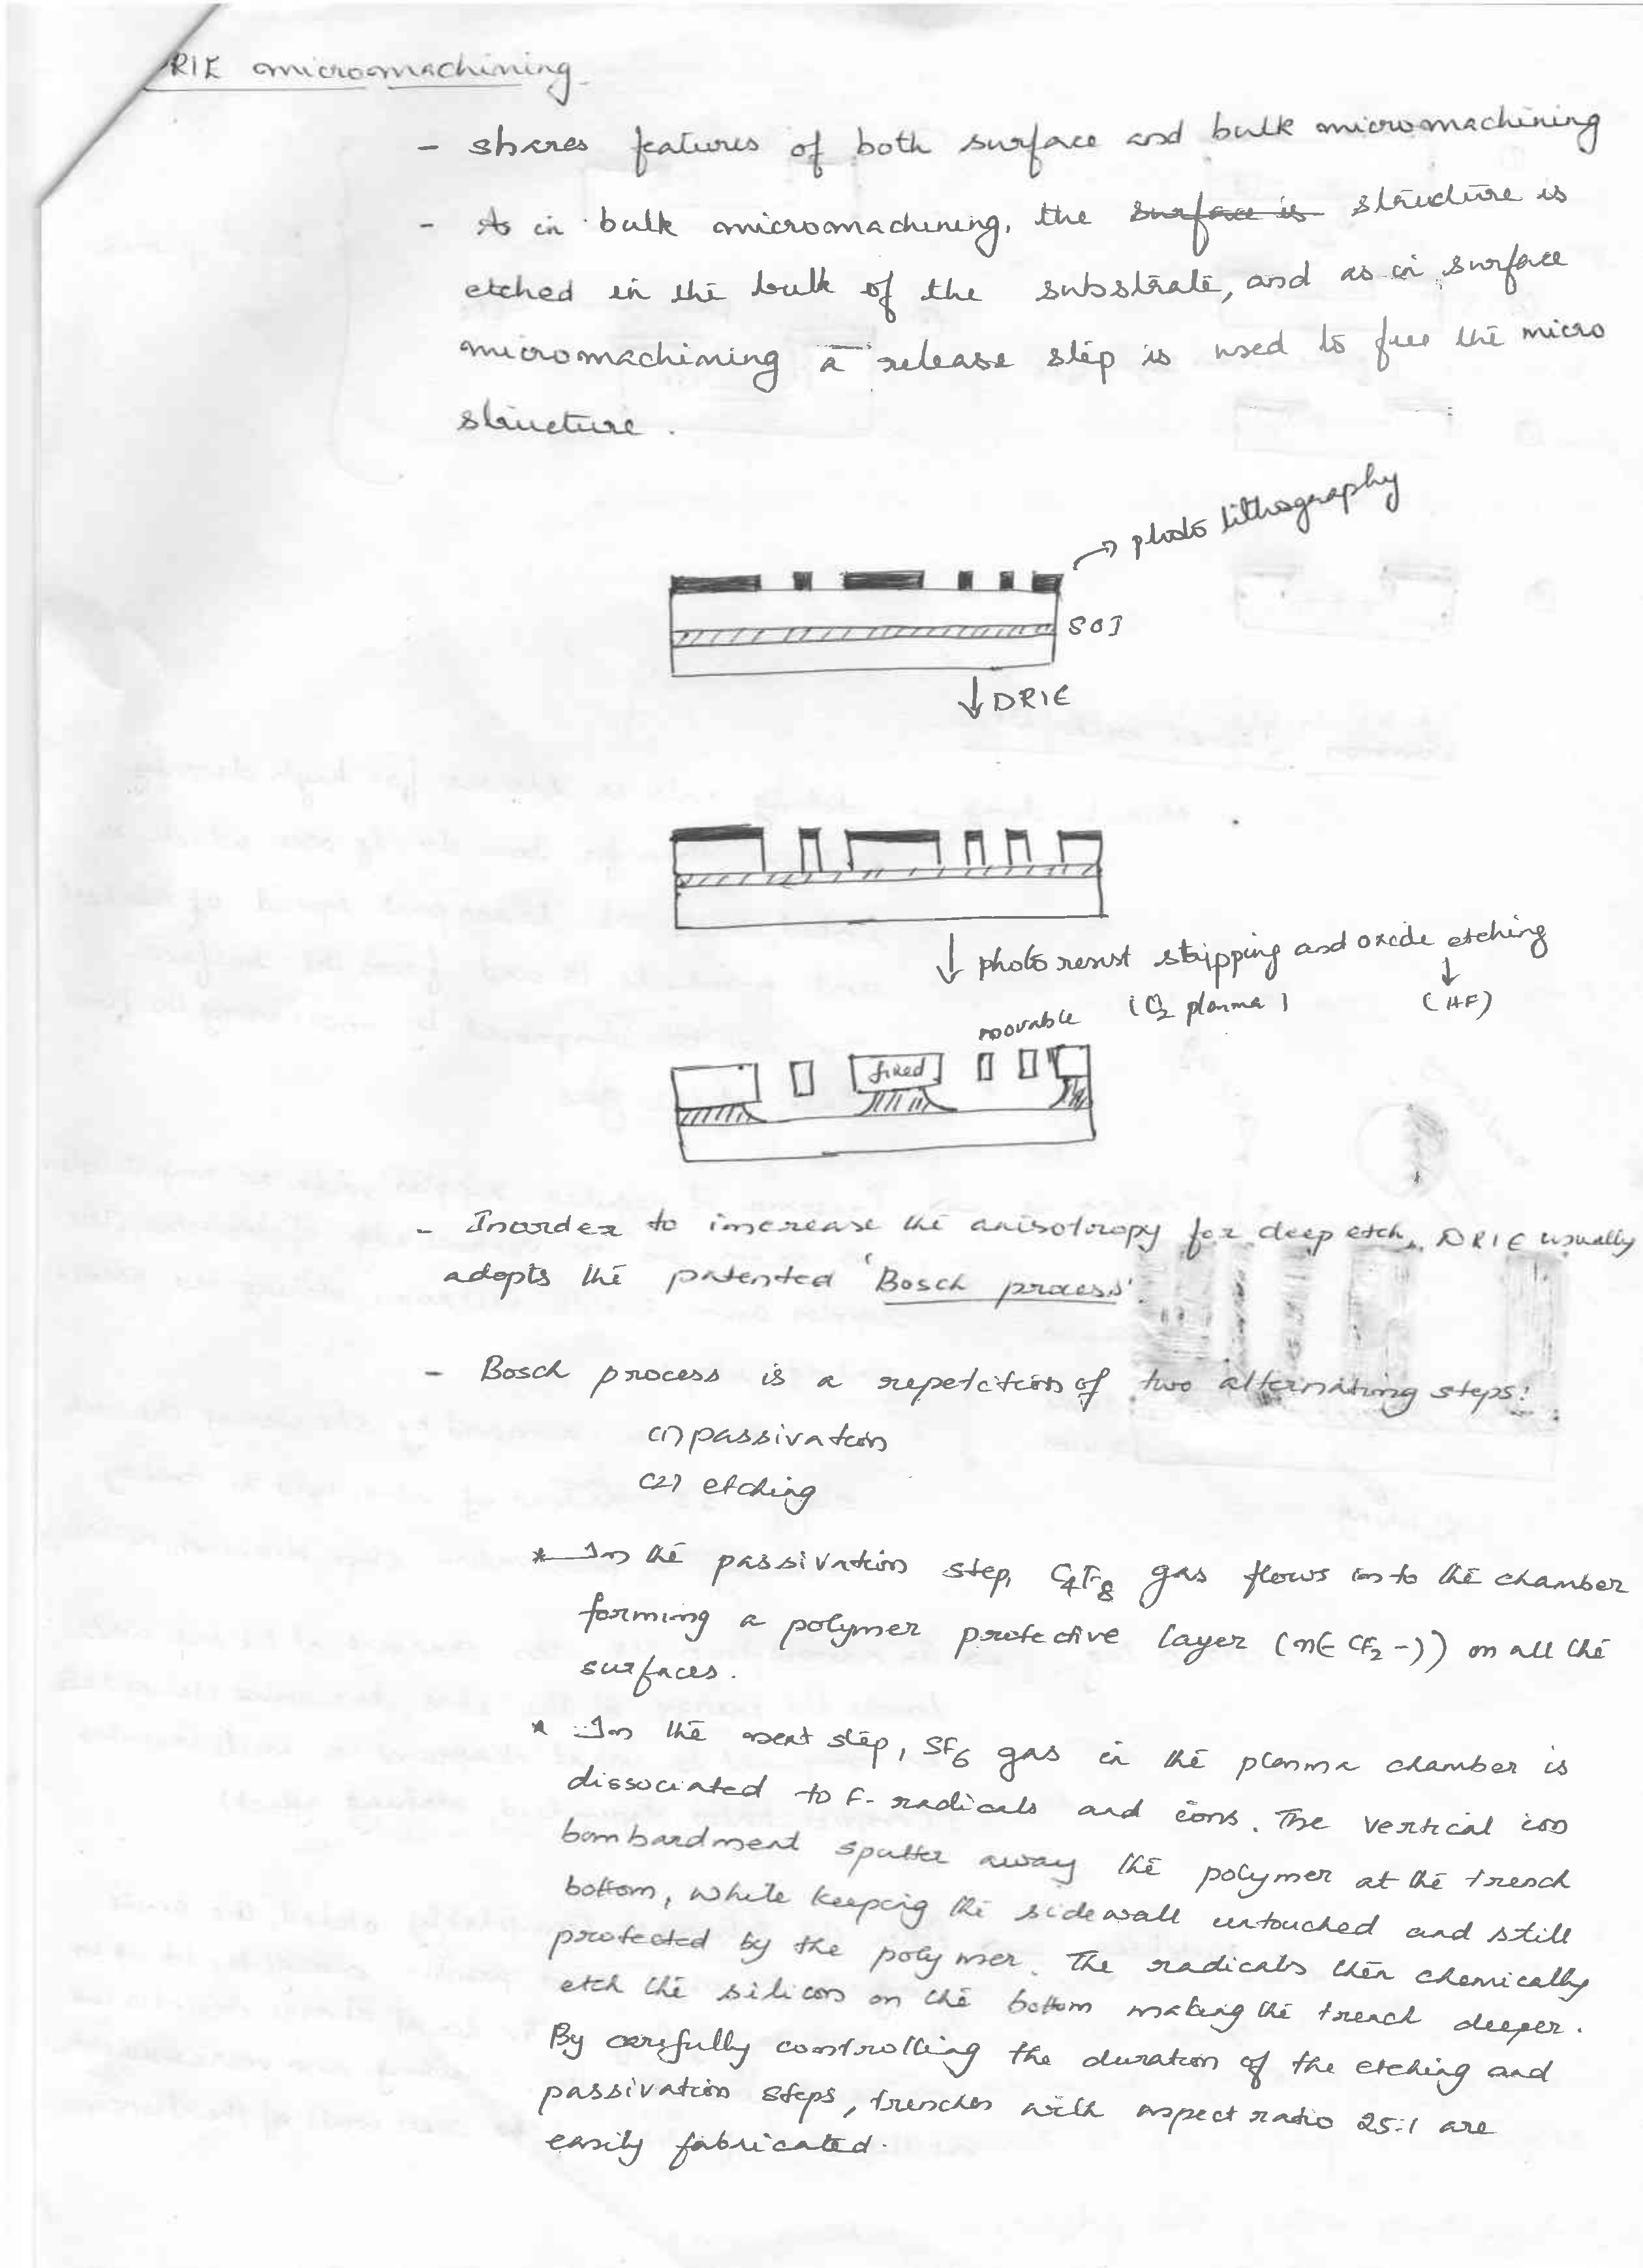 RIE micromachining
- shares features of both surface and bulk micromachining
- As in bulk micromachining, the surface is structure is
etched in the bulk of the substrate, and as in surface
micromachining a release step is used to free the micro
structure.
→ photo lithography
SOI
↓ DRIE
↓ photo resist stripping and oxide etching
(O2 plasma) ↓ (HF)
movable
fixed
- Inorder to increase the anisotropy for deep etch, DRIE usually
adopts the patented 'Bosch process'.
- Bosch process is a repetition of two alternating steps:
(1) passivation
(2) etching
* In the passivation step, C4F8 gas flows in to the chamber
forming a polymer protective layer (n(-CF2-)) on all the
surfaces.
* In the next step, SF6 gas in the plasma chamber is
dissociated to F- radicals and ions. The vertical ion
bombardment sputter away the polymer at the trench
bottom, while keeping the sidewall untouched and still
protected by the polymer. The radicals then chemically
etch the silicon on the bottom making the trench deeper.
By carefully controlling the duration of the etching and
passivation steps, trenches with aspect ratio 25:1 are
easily fabricated.